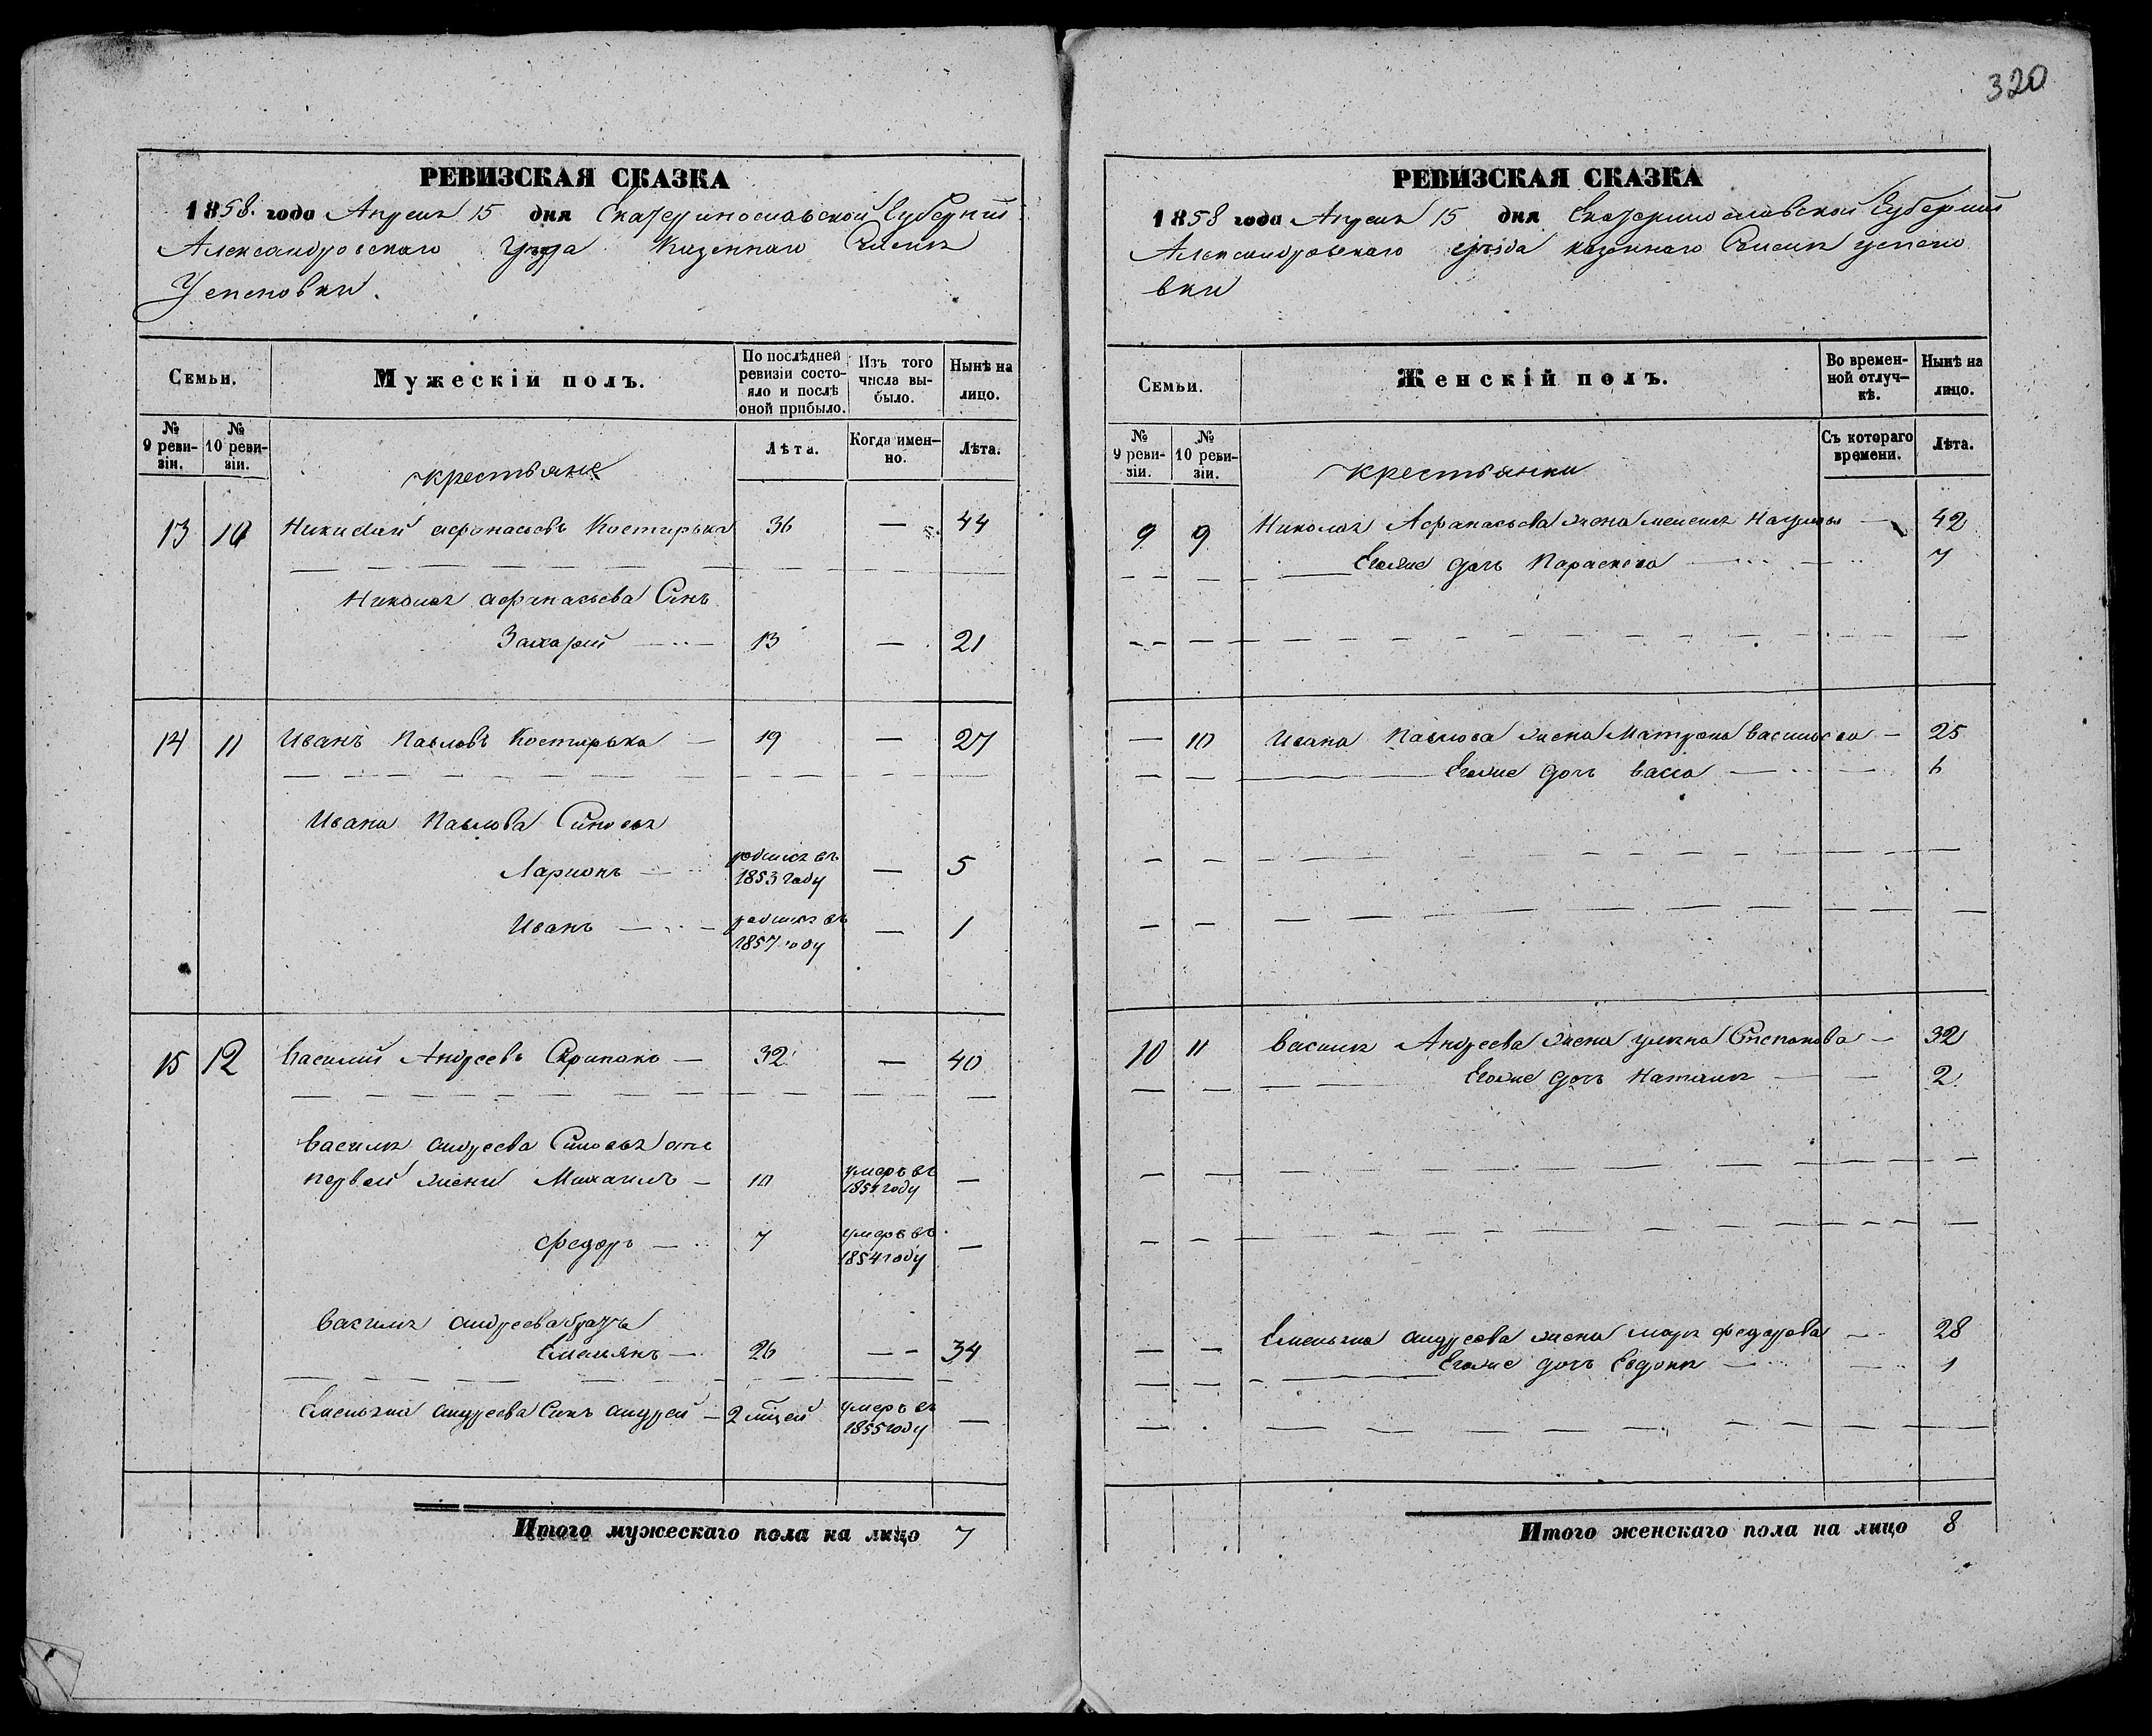 320
РЕВИЗСКАЯ СКАЗКА
1858. года Апреля 15 дня Екатеринославской Губернии
Александровского Уезда Казенного Селенія
Успеновки.
Семьи.
Мужескій полъ.
По послѣдней ревизіи состояло и послѣ оной прибыло.
Изъ того числа выбыло.
Нынѣ на лицо.
№ 9 ревизіи.
№ 10 ревизіи.
крестьяне
Лѣта.
Когда именно.
Лѣта.
13 10 Николай афанасьевъ Костирька 36 — 44
Николая афанасьева Синъ
Захарій — 13 — 21
14 11 Иванъ Павловъ Костирька — 19 — 27
Ивана Павлова Сыновья
Ларионъ — родился въ 1853 году — 5
Иванъ — родился въ 1857 году — 1
15 12 Василий Андреевъ Скрипокъ — 32 — 40
Василія андреева Сыновья отъ
первой жени Михаилъ — 10 умеръ въ 1854 году —
Федоръ — 7 умеръ въ 1854 году —
Василія андреева братъ
Емельянъ — 26 — — 34
Емельяна андреева Синъ андрей — 2 мцей умеръ въ 1855 году —
Итого мужескаго пола на лицо 7
РЕВИЗСКАЯ СКАЗКА
1858 года Апреля 15 дня Екатеринославской Губернии
Александровскаго уѣзда казеннаго Селенія успено
вки
Семьи.
Женскій полъ.
Во временной отлучкѣ.
Нынѣ на лицо.
№ 9 ревизіи.
№ 10 ревизіи.
крестьянки
Съ котораго времени.
Лѣта.
9 9 Николая Афанасьева жена — 42
Егоже дочь Параскева — 7
— 10 Ивана Павлова жена Матрона васильева — 25
Егоже дочь васса — 6
10 11 Василія Андреева жена улияна Степанова — 32
Егоже дочь Наталія — 2
Емельяна андреева жена марія федорова — 28
Егоже дочь Евдокія — 1
Итого женскаго пола на лицо 8